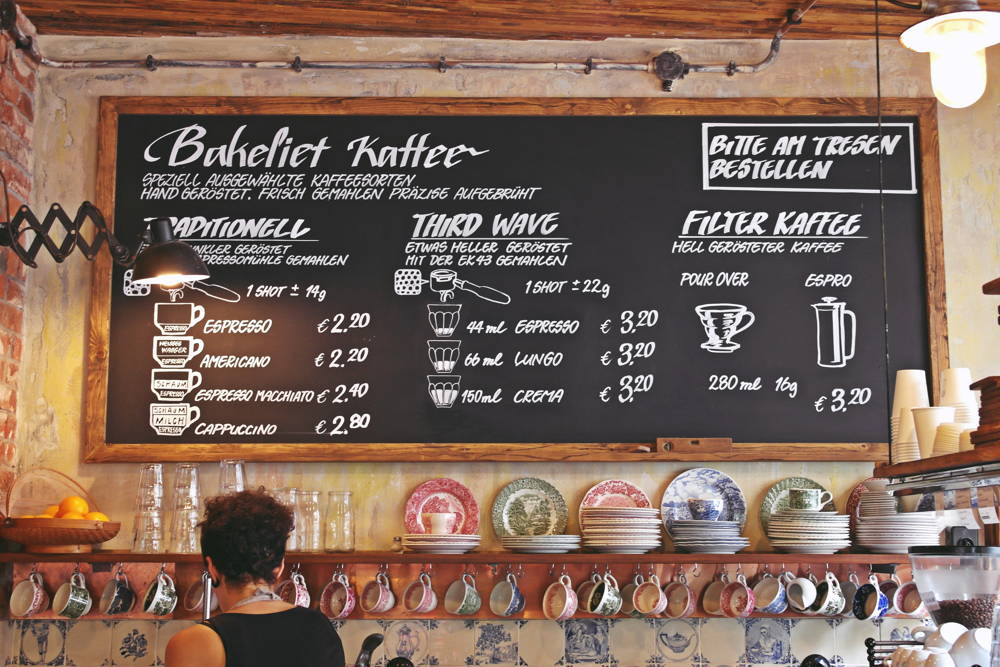 Bakeliet Kaffee
SPEZIELL AUSGEWÄHLTE KAFFEESORTEN
HAND GERÖSTET. FRISCH GEMAHLEN PRÄZISE AUFGEBRÜHT
BITTE AM TRESEN
BESTELLEN
TRADITIONELL
GERÖSTET
GEMAHLEN
1 SHOT ± 14g
ESPRESSO
ESPRESSO € 2.20
WASSER
ESPRESSO
AMERICANO € 2.20
SCHAUM
ESPRESSO
ESPRESSO MACCHIATO € 2.40
SCHAUM
MILCH
ESPRESSO
CAPPUCCINO € 2.80
THIRD WAVE
ETWAS HELLER GERÖSTET
MIT DER EK43 GEMAHLEN
1 SHOT ± 22g
44 ml ESPRESSO € 3.20
66 ml LUNGO € 3.20
150 ml CREMA € 3.20
FILTER KAFFEE
HELL GERÖSTETER KAFFEE
POUR OVER ESPRO
280 ml 16g
€ 3.20